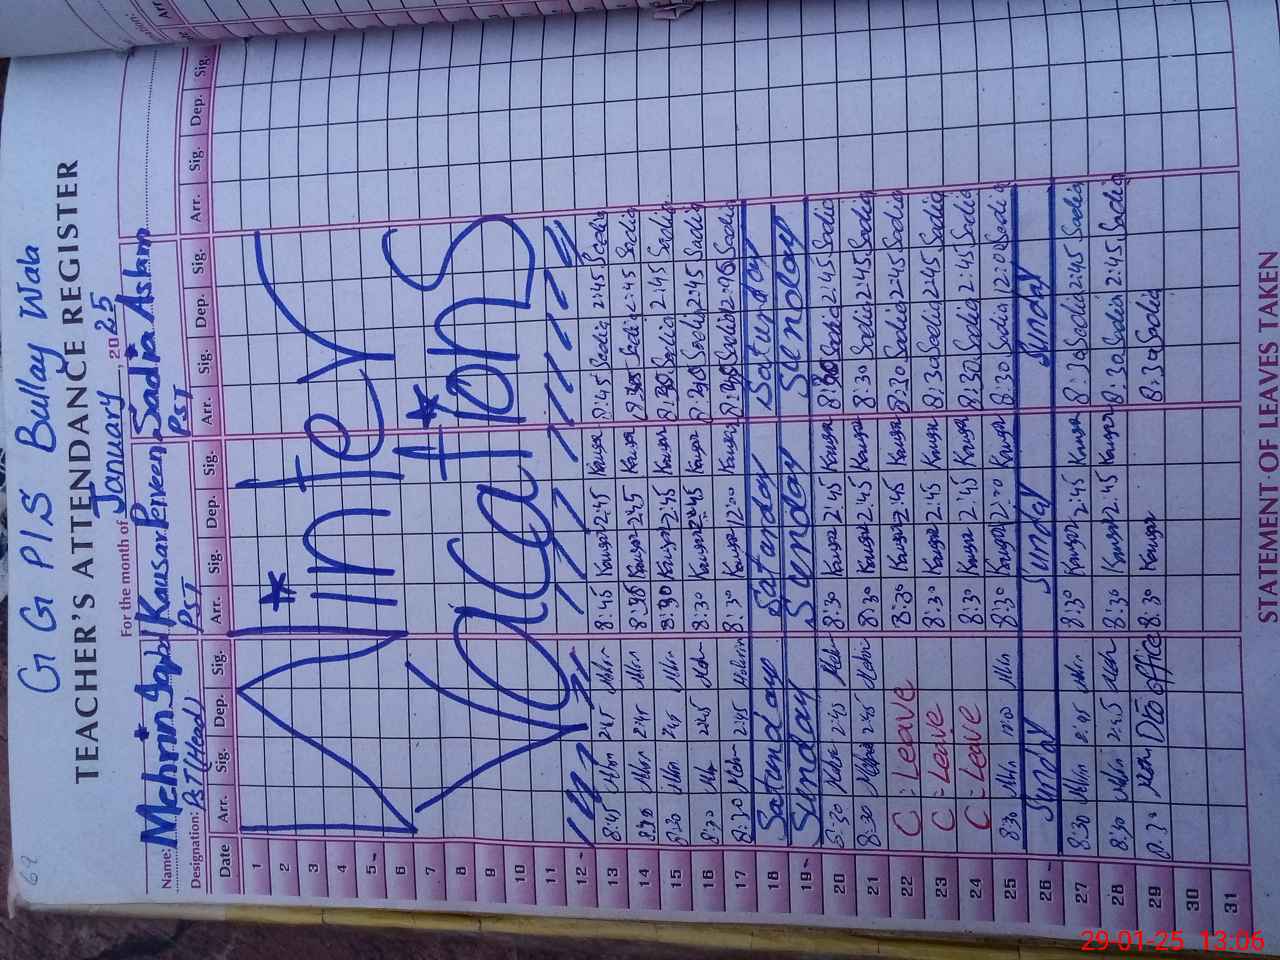 69
G G P/S Bullay Wala
TEACHER'S ATTENDANCE REGISTER
For the month of January, 2025
Name: Mehrin Kausar Parveen Sadia Aslam
Designation: PST (Head) PST PST
Date Arr. Sig. Dep. Sig. Arr. Sig. Dep. Sig. Arr. Sig. Dep. Sig. Arr. Sig. Dep. Sig.
1
2
3
4
5
6
7
8
9
10
11
12
Winter
Vacations
13 8:45 2:45 8:45 Kausar 2:45 Kausar 8:45 Sadia 2:45 Sadia
14 2:45 Kausar 2:45 Kausar Sadia 2:45 Sadia
15 2:45 8:30 Kausar 2:45 Kausar 8:30 Sadia 2:45 Sadia
16 8:30 2:45 8:30 Kausar 2:45 Kausar 8:30 Sadia 2:45 Sadia
17 8:30 2:45 8:30 Kausar 12:00 Kausar Sadia Sadia
18 Saturday Saturday Saturday
19 Sunday Sunday Sunday
20 8:30 2:45 8:30 Kausar 2:45 Kausar 8:30 Sadia 2:45 Sadia
21 8:30 2:45 8:30 Kausar 2:45 Kausar 8:30 Sadia 2:45 Sadia
22 C. Leave 8:30 Kausar 2:45 Kausar 8:30 Sadia 2:45 Sadia
23 C. Leave 8:30 Kausar 2:45 Kausar 8:30 Sadia 2:45 Sadia
24 C. Leave 8:30 Kausar 2:45 Kausar 8:30 Sadia 2:45 Sadia
25 8:30 12:00 8:30 Kausar Kausar 8:30 Sadia 12:00 Sadia
26 Sunday Sunday Sunday
27 8:30 2:45 8:30 Kausar 2:45 Kausar 8:30 Sadia 2:45 Sadia
28 8:30 2:45 8:30 Kausar 2:45 Kausar 8:30 Sadia 2:45 Sadia
29 8:30 office 8:30 Kausar 8:30 Sadia
30
31
STATEMENT OF LEAVES TAKEN
29-01-25 13:06